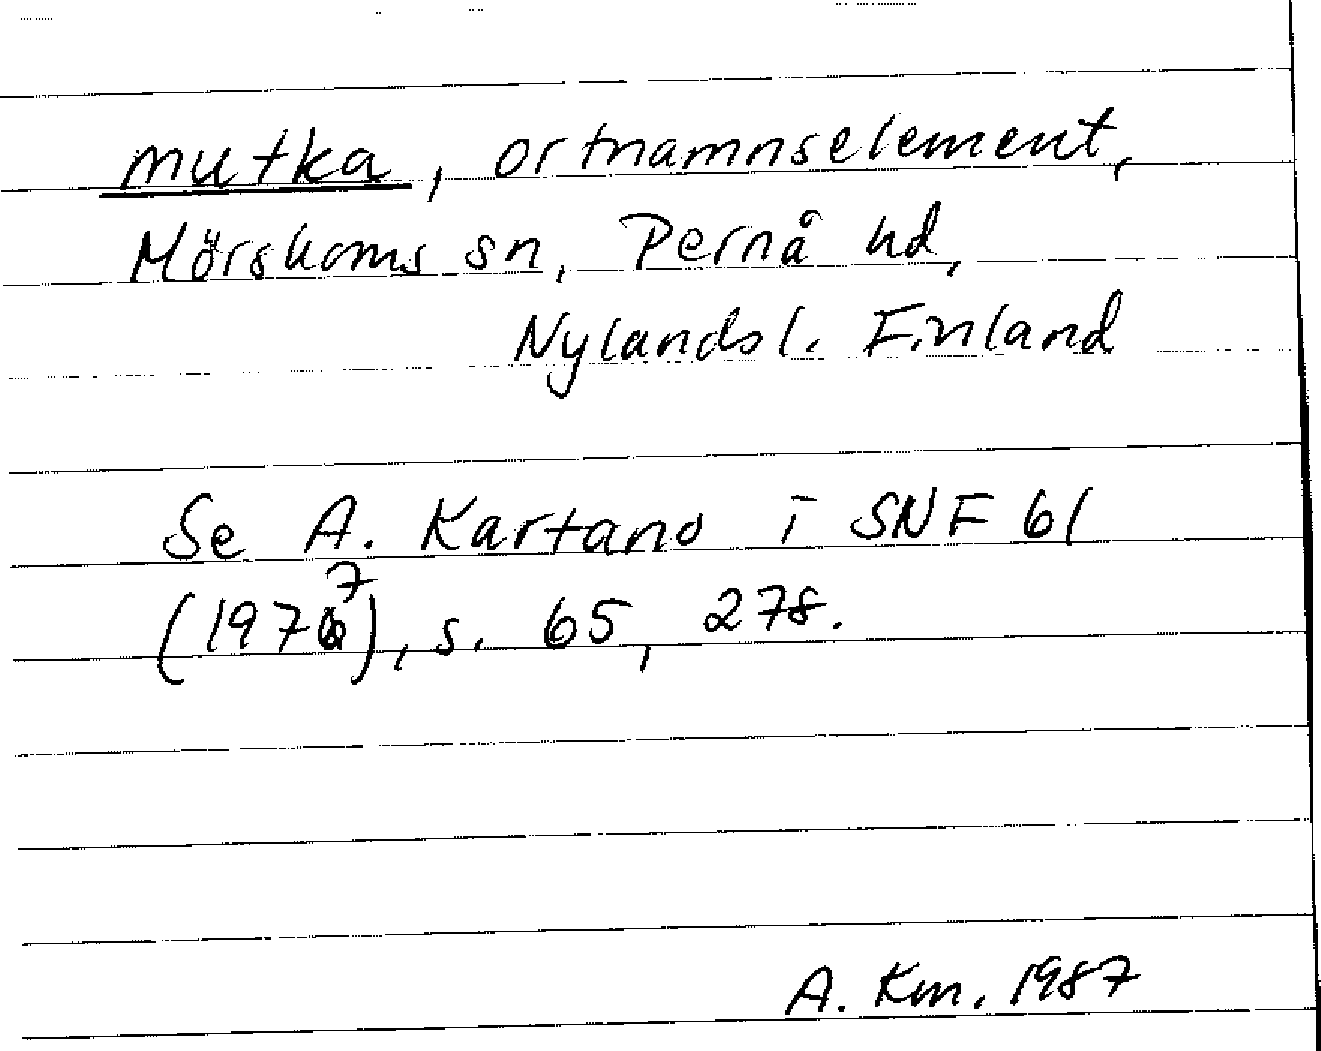 mutka, ortnamnselement,
Mörskoms sn, Pernå hd,
Nylandsl. Finland
Se A. Kartano i SNF 61
(1977), s. 65, 278.
A. Km. 1987